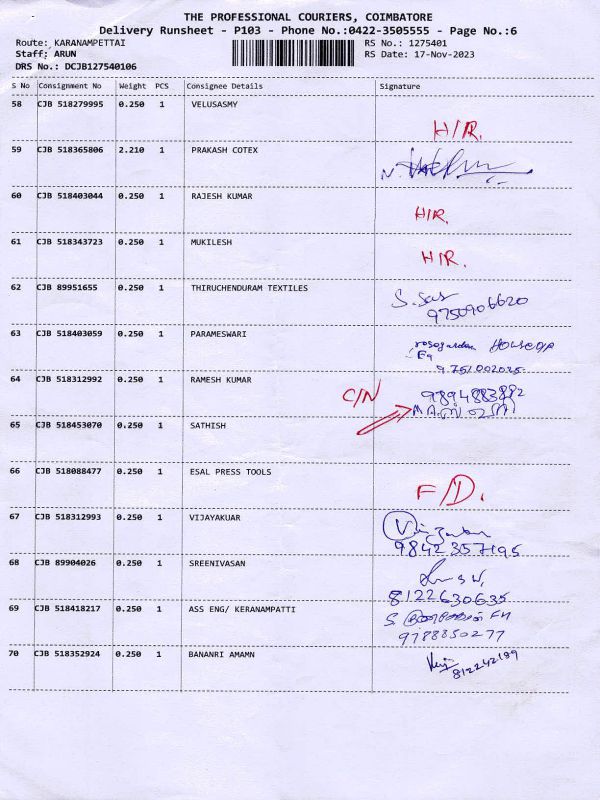 THE PROFESSIONAL COURIERS, COIMBATORE
Delivery Runsheet - P103 - Phone No.:0422-3505555 - Page No.:6
Route: KARANAMPETTAI RS No.: 1275401
Staff: ARUN RS Date: 17-Nov-2023
DRS No.: DCJB127540106
S No Consignment No Weight PCS Consignee Details Signature
58 CJB 518279995 0.250 1 VELUSASMY
H/R.
59 CJB 518365806 2.210 1 PRAKASH COTEX
60 CJB 518403044 0.250 1 RAJESH KUMAR
H/R.
61 CJB 518343723 0.250 1 MUKILESH
H/R.
62 CJB 89951655 0.250 1 THIRUCHENDURAM TEXTILES
9750906620
63 CJB 518403059 0.250 1 PARAMESWARI
64 CJB 518312992 0.250 1 RAMESH KUMAR
C/N 9894883882
65 CJB 518453070 0.250 1 SATHISH
66 CJB 518088477 0.250 1 ESAL PRESS TOOLS
F/D.
67 CJB 518312993 0.250 1 VIJAYAKUAR
9842357195
68 CJB 89904026 0.250 1 SREENIVASAN
8122630635
69 CJB 518418217 0.250 1 ASS ENG/ KERANAMPATTI
9788850277
70 CJB 518352924 0.250 1 BANANRI AMAMN